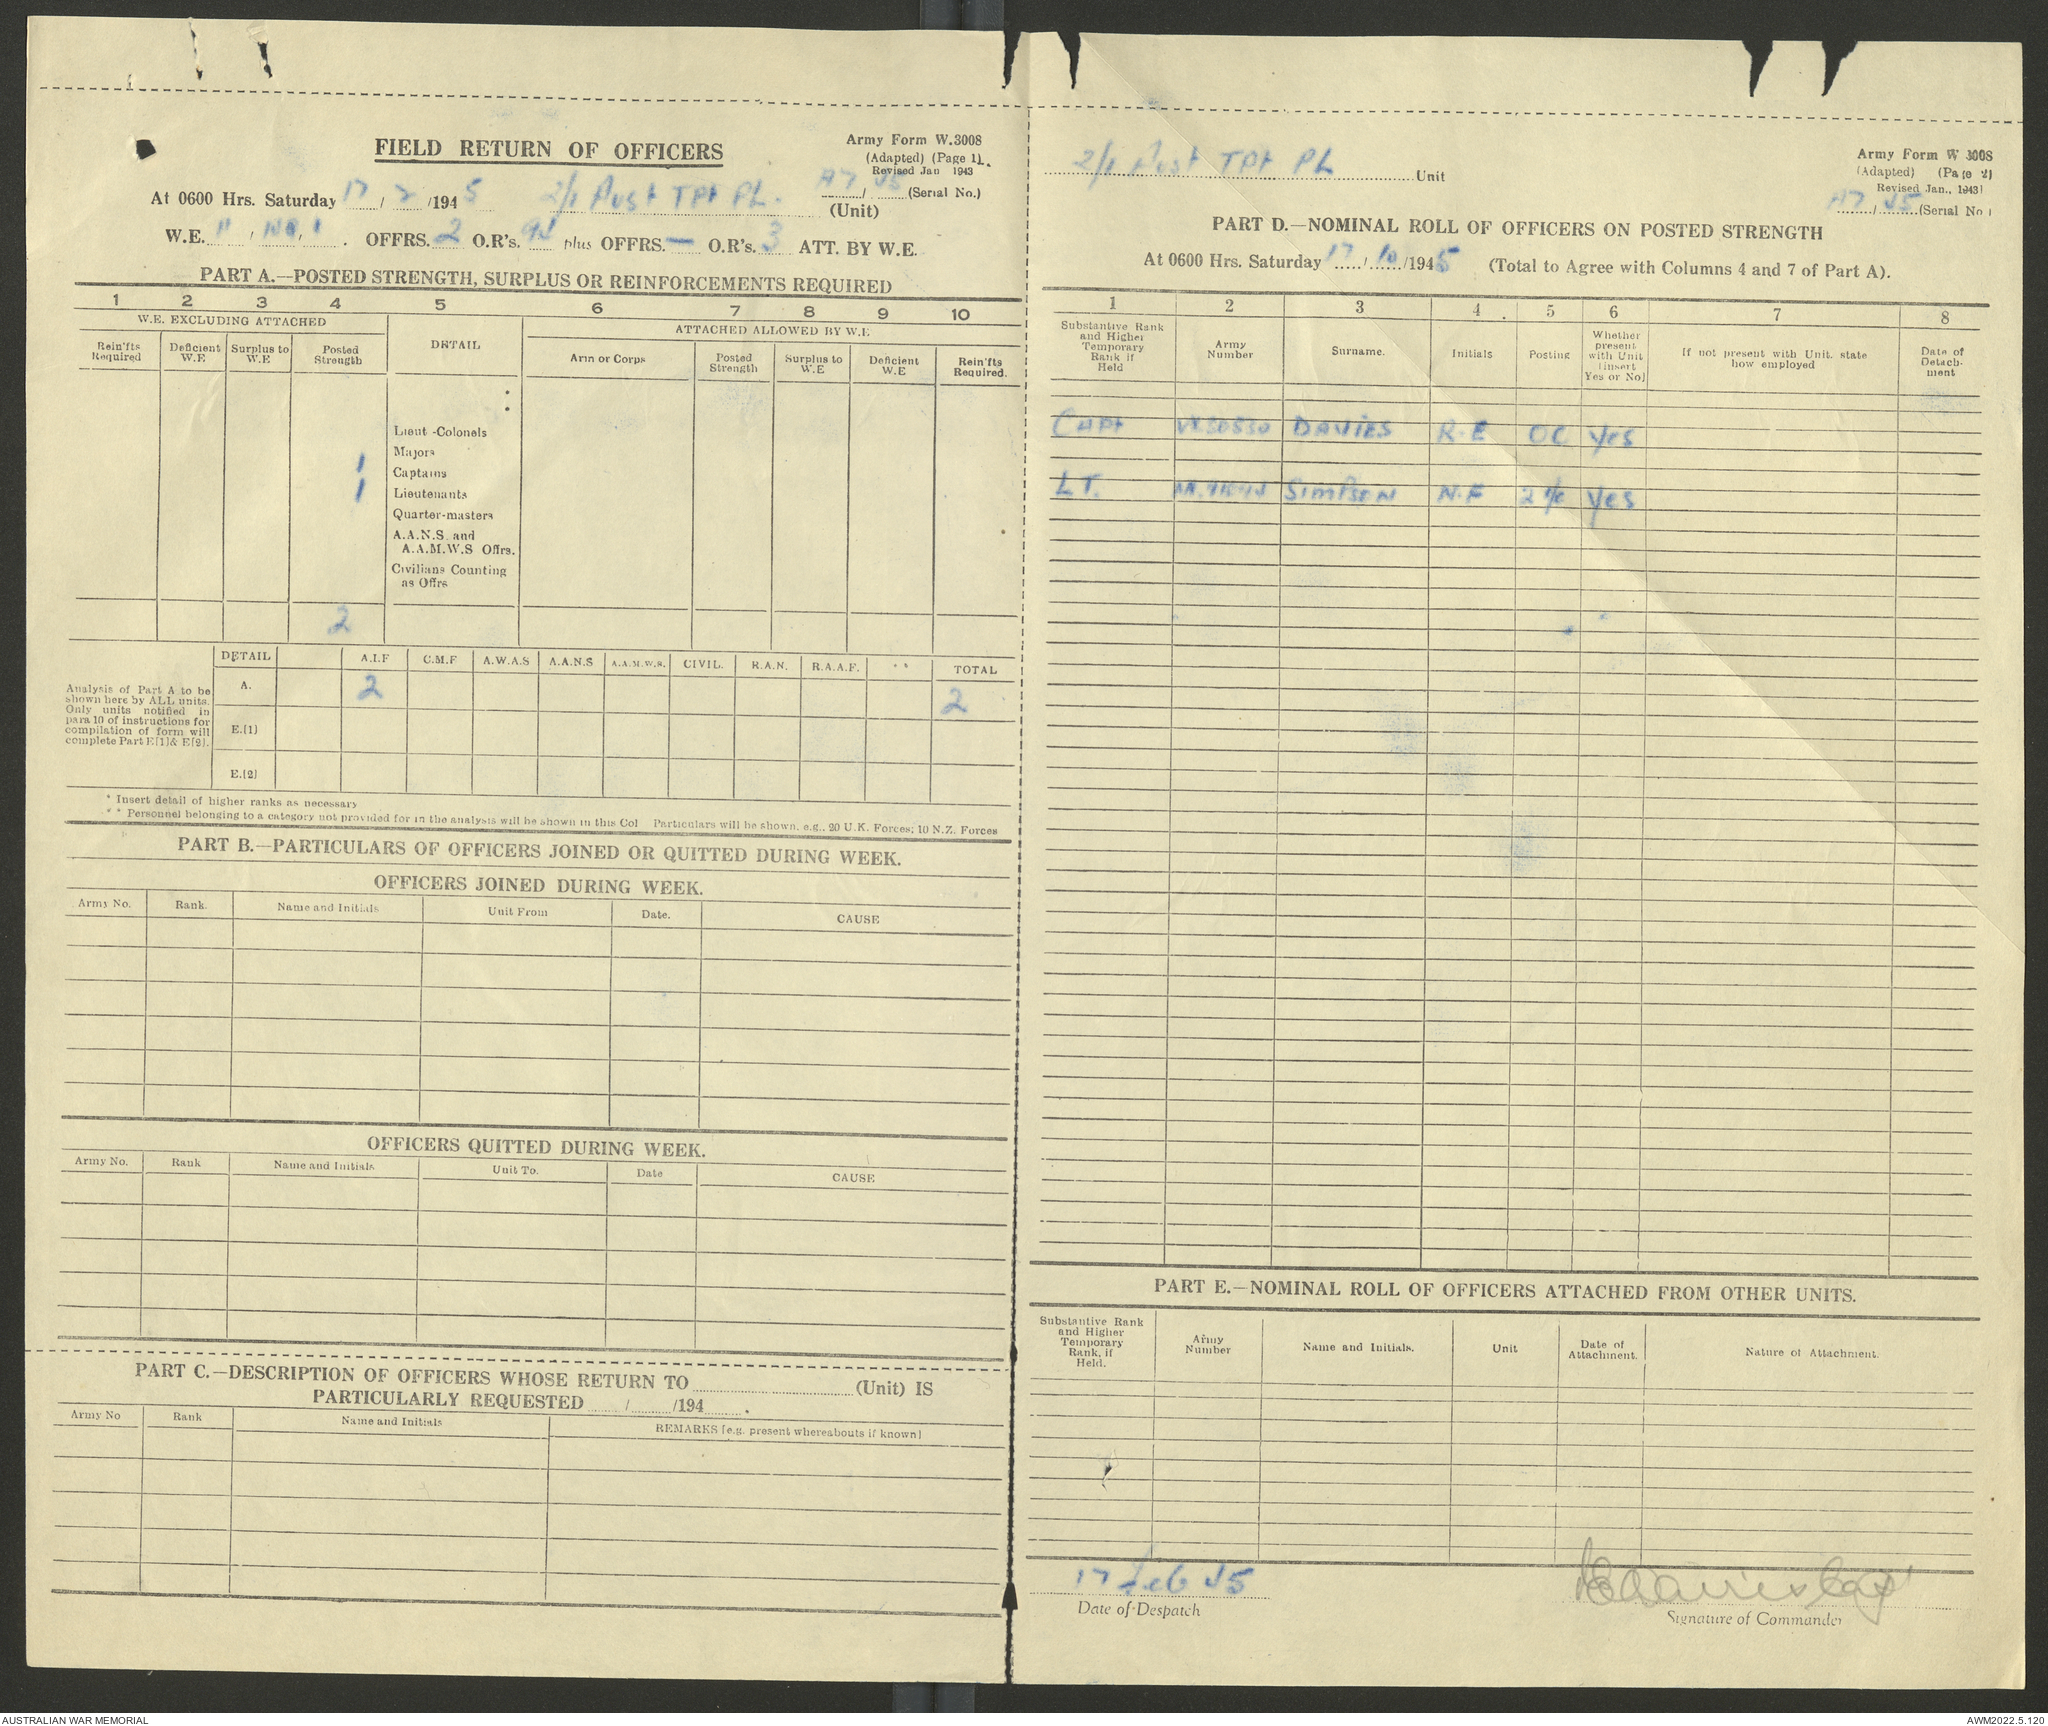 FIELD RETURN OF OFFICERS
Army Form W.3008
(Adapted) (Page 1).
Revised Jan 1943
A7 / 45 (Serial No.)
At 0600 Hrs. Saturday 17 / 2 /1945 2/1 Aust TPt PL. (Unit)
W.E. OFFRS. 2 O.R's. plus OFFRS. — O.R's. 3 ATT. BY W.E.
PART A.—POSTED STRENGTH, SURPLUS OR REINFORCEMENTS REQUIRED
1 2 3 4 5 6 7 8 9 10
W.E. EXCLUDING ATTACHED
ATTACHED ALLOWED BY W.E
Rein'fts Required
Deficient W.E
Surplus to W.E
Posted Strength
DETAIL
Arm or Corps
Posted Strength
Surplus to W.E
Deficient W.E
Rein'fts Required.
Lieut -Colonels
Majors
1 Captains
1 Lieutenants
Quarter-masters
A.A.N.S. and
A.A.M.W.S Offrs.
Civilians Counting
as Offrs
2
DETAIL A.I.F C.M.F A.W.A.S A.A.N.S A.A.M.W.S. CIVIL. R.A.N. R.A.A.F. ** TOTAL
Analysis of Part A to be
shown here by ALL units.
Only units notified in
para 10 of instructions for
compilation of form will
complete Part E[1]& E[2].
A. 2 2
E.(1)
E.(2)
* Insert detail of higher ranks as necessary
** Personnel belonging to a category not provided for in the analysis will be shown in this Col Particulars will be shown, e.g., 20 U.K. Forces; 10 N.Z. Forces
PART B.—PARTICULARS OF OFFICERS JOINED OR QUITTED DURING WEEK.
OFFICERS JOINED DURING WEEK.
Army No. Rank. Name and Initials Unit From Date. CAUSE
OFFICERS QUITTED DURING WEEK.
Army No. Rank Name and Initials Unit To. Date CAUSE
PART C.—DESCRIPTION OF OFFICERS WHOSE RETURN TO (Unit) IS
PARTICULARLY REQUESTED / /194 .
Army No Rank Name and Initials REMARKS [e.g. present whereabouts if known]
2/1 Aust TPt PL Unit
Army Form W 3008
(Adapted) (Page 2)
Revised Jan., 1943)
A7 / 45 (Serial No.)
PART D.—NOMINAL ROLL OF OFFICERS ON POSTED STRENGTH
At 0600 Hrs. Saturday 17 / 10 /1945 (Total to Agree with Columns 4 and 7 of Part A).
1 2 3 4 5 6 7 8
Substantive Rank and Higher Temporary Rank if Held
Army Number
Surname.
Initials
Posting
Whether present with Unit [insert Yes or No]
If not present with Unit. state how employed
Date of Detach- ment
CAPt VX50530 DAVIES R.E OC Yes
LT. SIMPSON N.F 2 i/c Yes
PART E.—NOMINAL ROLL OF OFFICERS ATTACHED FROM OTHER UNITS.
Substantive Rank and Higher Temporary Rank, if Held.
Army Number
Name and Initials.
Unit
Date of Attachment.
Nature of Attachment.
17 Feb 45
Date of Despatch
REDavies Capt
Signature of Commander
AUSTRALIAN WAR MEMORIAL
AWM2022.5.120